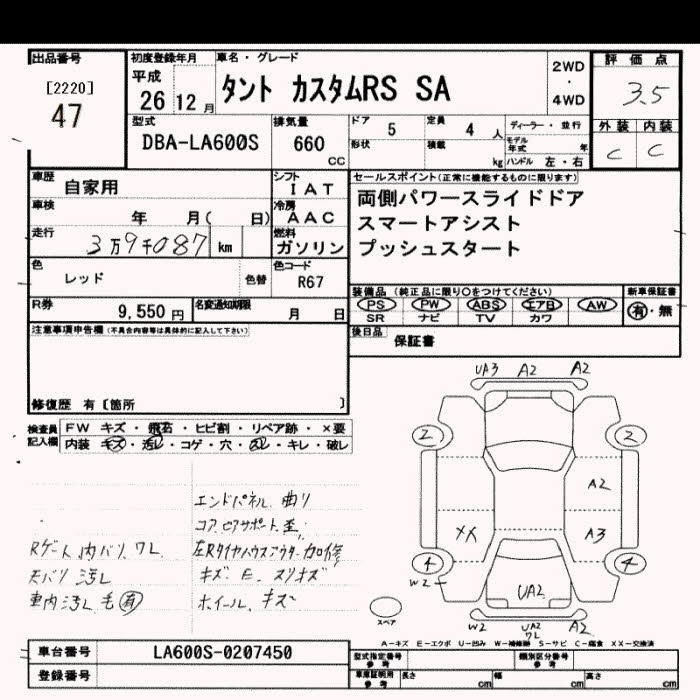 出品番号
[2220]
47
初度登録年月
平成
26 12 月
車名・グレード
タント カスタムRS SA
2WD
・
4WD
評価点
3.5
外装 内装
C C
型式
DBA-LA600S
排気量
660
CC
ドア
5
定員
4 人
ディーラー・並行
形状
積載
kg
モデル年式
年
ハンドル 左・右
車歴
自家用
シフト
IAT
車検
年 月( 日)
冷房
AAC
走行
3万9千087 km
燃料
ガソリン
色
レッド
色替
色コード
R67
R券
9,550 円
名変通知期限
月 日
セールスポイント(正常に機能するものに限ります)
両側パワースライドドア
スマートアシスト
プッシュスタート
装備品 (純正品に限り〇をつけてください)
PS PW ABS エアB AW
SR ナビ TV カワ
新車保証書
有・無
後日品
保証書
注意事項申告欄(不具合内容等は具体的に記入して下さい)
修復歴 有〔箇所 〕
検査員
記入欄
FW キズ・飛石・ヒビ割・リペア跡・×要
内装 キズ・汚レ・コゲ・穴・スレ・キレ・破レ
エンドパネル 曲り
コアサポート 歪
Rゲート内バリ ワレ
左Rタイヤハウスアウター加修
天バリ 汚レ
キズ E スリキズ
車内汚レ 毛 有
ホイール キズ
UA3 A2 A2
2 2
A2
XX A3
4 4
W2
UA2
スペア
W2 UA2 A2
ワレ
A-キズ E-エクボ U-凹み W-補修跡 S-サビ C-腐食 XX-交換済
車台番号
LA600S-0207450
登録番号
型式指定番号
参考
類別区分番号
参考
車庫証明用
参考
長さ cm 幅 cm 高さ cm